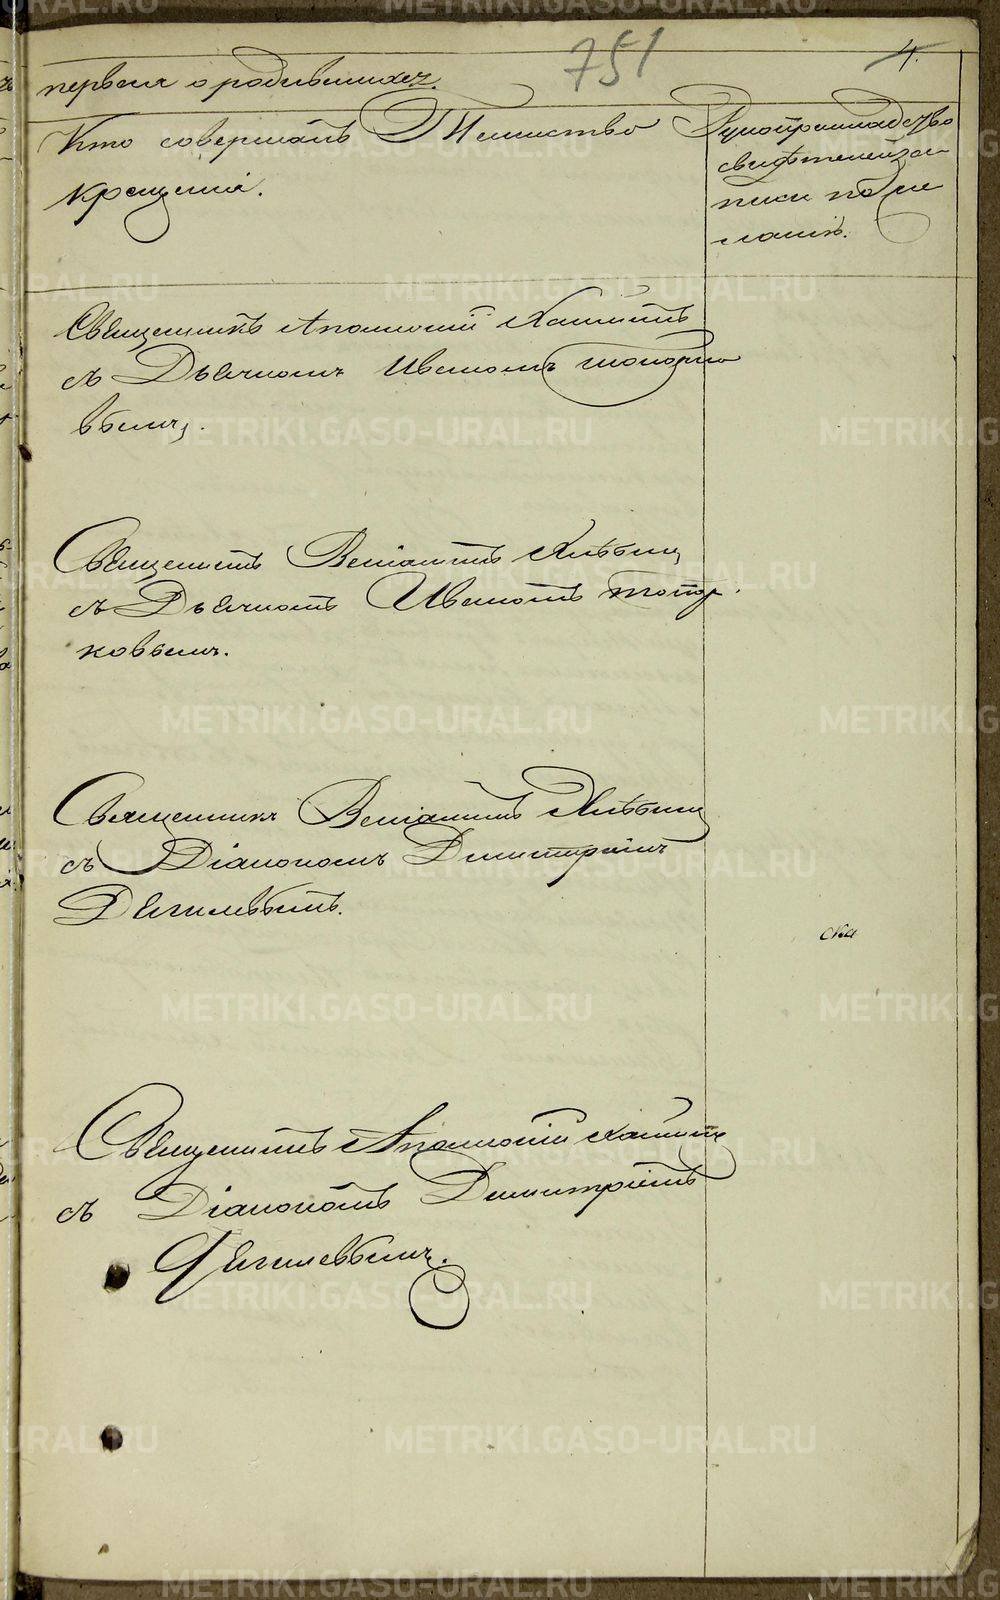 751
4.
первая о родившихся.
Кто совершалъ Таинство
крещенія.
Рукоприкладство
свидѣтелей за
писи по же
ланію.
Священникъ Аполлоній
съ Дьячкомъ Иваномъ Топорко
вымъ.
Священникъ Веніаминъ Хлѣбинъ
съ Дьячкомъ Иваномъ Топор
ковымъ.
Священникъ Веніаминъ Хлѣбинъ
съ Діакономъ Димитріемъ
Дягилевымъ.
Священникъ Аполлоній
съ Діакономъ Димитріемъ
Дягилевымъ.
METRIKI.GASO-URAL.RU